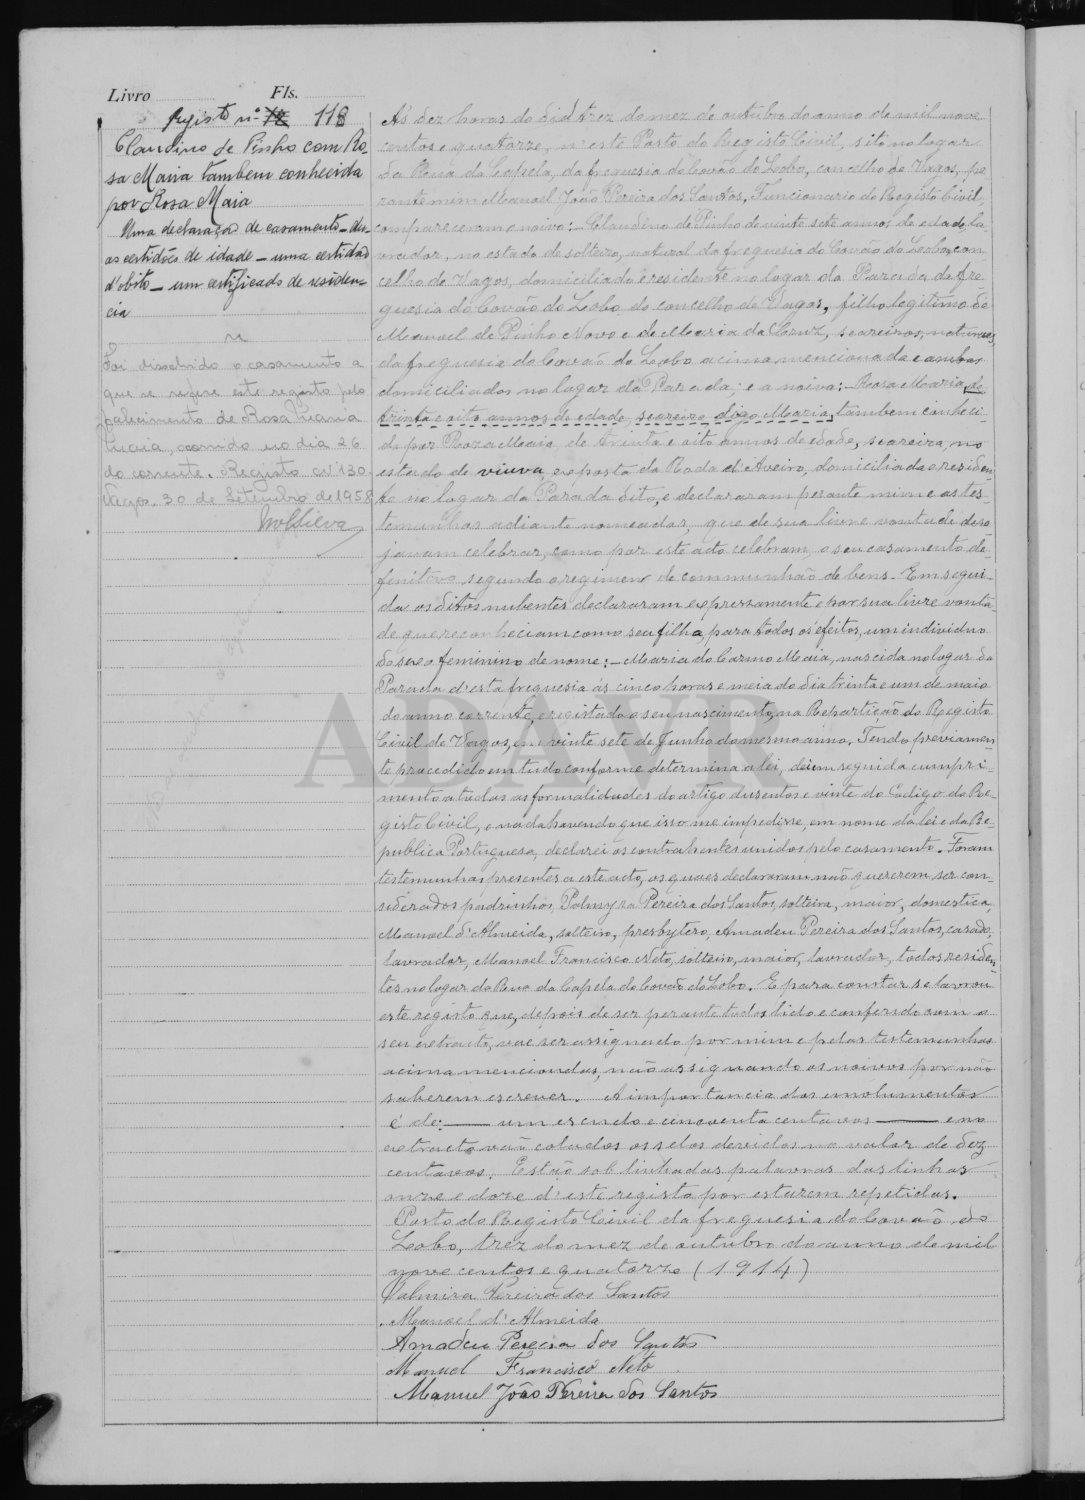 Livro Fls.
Registo nº 12 118
Claudino de Pinho com Ro-
sa Maria tambem conhecida
por Rosa Maia
Uma declaração de casamento - du-
as certidões de idade - uma certidão
d'obito - um certificado de residen-
cia
Foi dissolvido o casamento a
que se refere este registo pelo
falecimento de Rosa Maria
ocorrido no dia 26
do corrente. Registo nº 130.
Vagos, 30 de Setembro de 1958
A's dez horas do dia trez do mez de outubro do anno de mil nove
centos e quatorze, n'este Posto do Registo Civil, sito no logar
da Rua da Capela, da freguesia do Covão do Lobo, concelho de Vagos, pe
rante mim Manuel João Pereira dos Santos, Funcionario do Registo Civil,
compareceram o noivo: - Claudino de Pinho de vinte sete annos de edade, la
vrador, no estado de solteiro, natural da freguesia do Covão do Lobo, con
celho de Vagos, domiciliado e residente no logar da Parada, da fre
guesia do Covão do Lobo, do concelho de Vagos, filho legitimo de
Manuel de Pinho Novo e de Maria da Cruz, seareiros, naturaes
da freguesia do Covão do Lobo acima mencionada e ambos
domiciliados no logar da Parada; e a noiva: - Rosa Maria, de
trinta e oito annos de edade, seareira, digo Maria, tambem conheci-
da por Roza Maia, de trinta e oito annos de edade, seareira, no
estado de viuva, exposta da Roda d'Aveiro, domiciliada e residen-
te no logar da Parada dito, e declararam perante mim e as tes-
temunhas adiante nomeadas, que de sua livre vontade dese
javam celebrar, como por este acto celebram, o seu casamento de-
fenitivo, segundo o regimen de communhão de bens. Em segui-
da os ditos nubentes declararam expressamente e por sua livre vonta-
de que reconheciam como sua filha, para todos os efeitos, um individuo
do sexo feminino de nome: - Maria do Carmo Maia, nascida no logar da
Parada d'esta freguesia ás cinco horas e meia do dia trinta e um de maio
do anno corrente, e registado o seu nascimento, na Repartição do Registo
Civil de Vagos, em vinte sete de Junho do mesmo anno. Tendo previamen-
te procedido em tudo conforme determina a lei, dei em seguida cumpri-
mento a todas as formalidades do artigo duzentos e vinte do Codigo do Re-
gisto Civil, e nada havendo que isso me impedisse, em nome da lei e da Re-
publica Portuguesa, declarei os contrahentes unidos pelo casamento. Foram
testemunhas presentes a este acto, os quaes declararam não quererem ser con-
siderados padrinhos, Palmyra Pereira dos Santos, solteira, maior, domestica,
Manuel d'Almeida, solteiro, presbytero, Amadeu Pereira dos Santos, casado,
lavrador, Manoel Francisco Neto, solteiro, maior, lavrador, todos residen-
tes no logar da Rua da Capela do Covão do Lobo. E para constar se lavrou
este registo que, depois de ser perante todos lido e conferido com o
seu extracto, vae ser assignado por mim e pelas testemunhas
acima mencionadas, não assignando os noivos por não
saberem escrever. A importancia dos emolumentos
é de: — um escudo e cincoenta centavos — e no
extracto vão colados os selos devidos no valor de dez
centavos. Estão sob linhadas palavras das linhas
onze e doze d'este registo por estarem repetidas.
Posto do Registo Civil da freguesia do Covão do
Lobo, trez do mez de outubro do anno de mil
nove centos e quatorze (1914)
Palmira Pereira dos Santos
Manuel d'Almeida
Amadeu Pereira dos Santos
Manuel Francisco Neto
Manuel João Pereira dos Santos
ADAVR